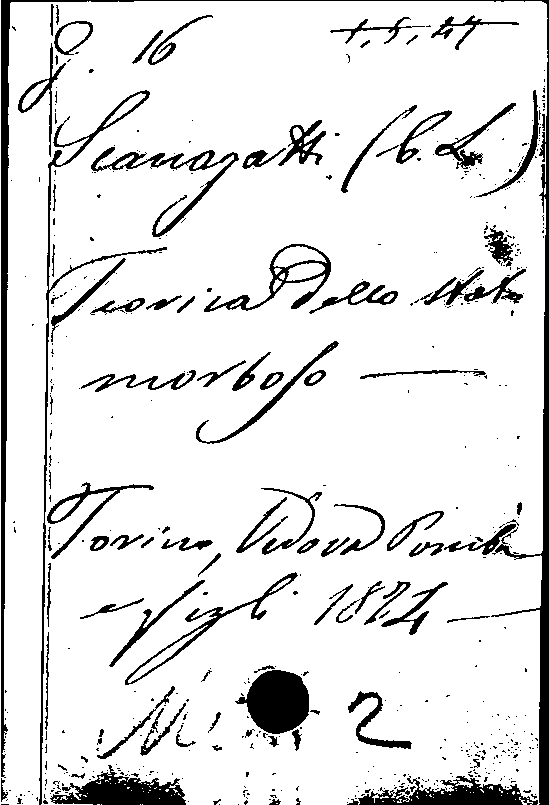 J. 16 1,5,47
Scanagatti (C. L.)
Teorica dello stato
morboso —
Torino, Vedova Pomba
e figli 1824 —
2